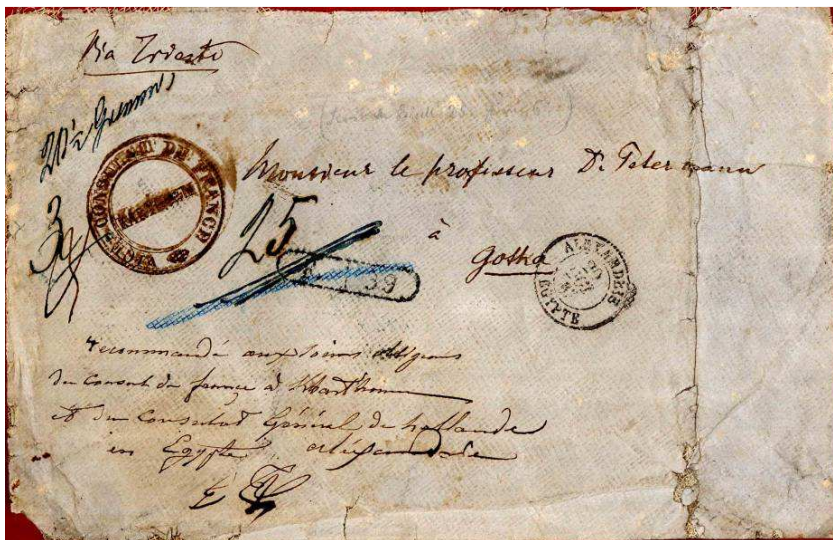 Via Trieste
VICE CONSULAT DE FRANCE
KARTHOUM
Monsieur le professeur Dr. Petermann
à
Gotha
25
39
ALEXANDRIE
EGYPTE
recommandé aux soins obligeans
du Consul de france à Kharthoum
et du Consulat Général de hollande
en Egypte alexandrie